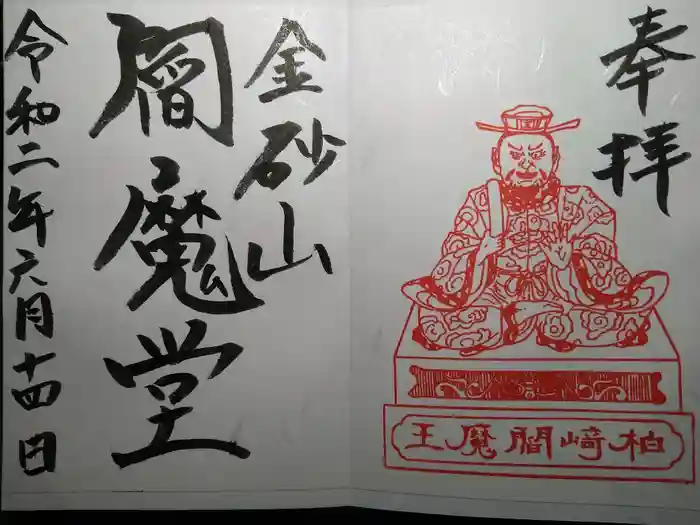 奉拝
柏﨑閻魔王
金砂山
閻魔堂
令和二年六月十四日